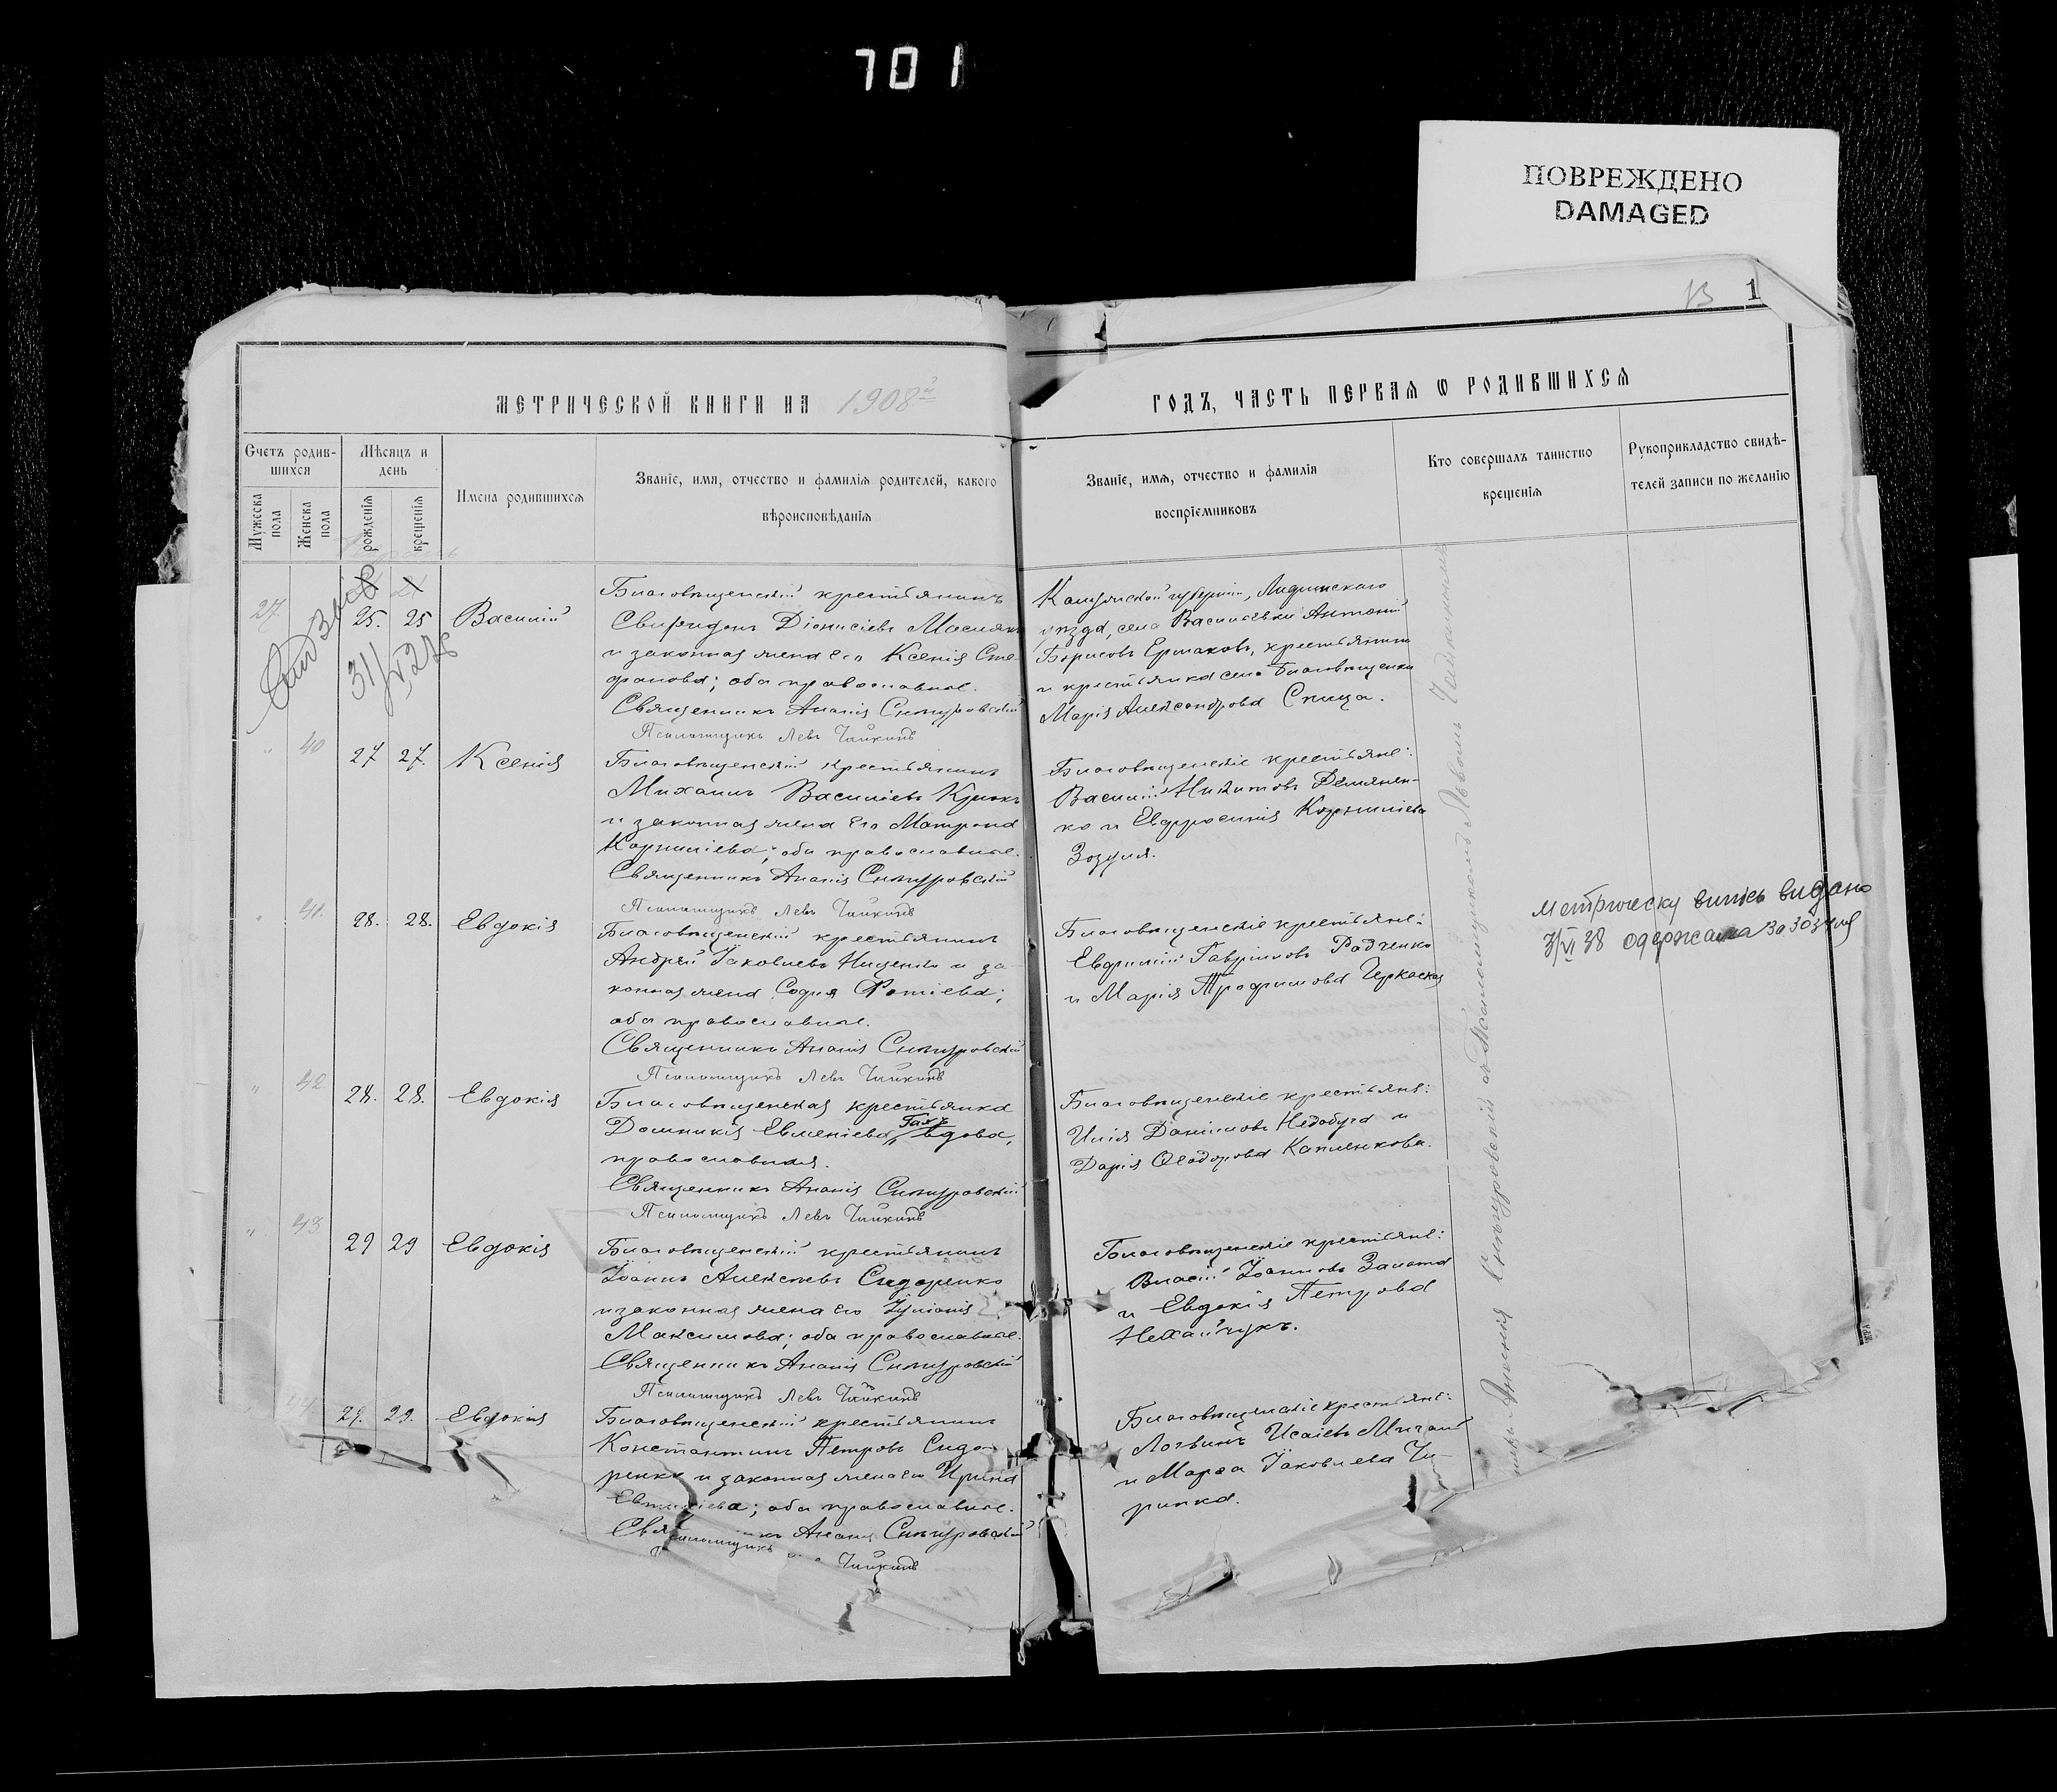 701
ПОВРЕЖДЕНО
DAMAGED
13 1
МЕТРИЧЕСКОЙ КНИГИ НА 1908
ГОДЪ, ЧАСТЬ ПЕРВАЯ Ѡ РОДИВШИХСЯ
Счетъ родив-
шихся
Мѣсяцъ и
день
Мужеска
пола
Женска
пола
рожденія
крещенія
Имена родившихся
Званіе, имя, отчество и фамилія родителей, какого
вѣроисповѣданія
Званіе, имя, отчество и фамилія
воспріемниковъ
Кто совершалъ таинство
крещенія
Рукоприкладство свидѣ-
телей записи по желанію
27 25. 25 Василій
Благовѣщенскій крестьянинъ
Свиридонъ Діонисіевъ Маслякъ
и законная жена его Ксенія Сте-
фанова; оба православные.
Священникъ Ананія Снѣгуровскій
Псаломщикъ Левъ Чайкинъ
губерніи,
уѣзда, села Васильевки Антоній
Борисовъ Ермаковъ, крестьянинъ
и крестьянка села Благовѣщенки
Марія Александрова Спица.
" 40 27 27. Ксенія
Благовѣщенскій крестьянинъ
Михаилъ Василіевъ Крюкъ
и законная жена его Матрона
Корниліева; оба православные.
Священникъ Ананія Снѣгуровскій
Псаломщикъ Левъ Чайкинъ
Благовѣщенскіе крестьяне:
Василій Никитовъ Демянен-
ко и Евфросинія Корниліева
Зозуля.
" 41. 28. 28. Евдокія
Благовѣщенскій крестьянинъ
Андрей Іаковлевъ Ниценко и за-
конная жена Софія Фотіева;
оба православные.
Священникъ Ананія Снѣгуровскій
Псаломщикъ Левъ Чайкинъ
Благовѣщенскіе крестьяне:
Евфимій Гавріиловъ Радченко
и Марія Трофимова Черкаская
метричну випись видано
3/VI 38 одержала Зозуля
" 42 28. 28. Евдокія
Благовѣщенская крестьянка
Домникія Евменіева вдова,
православная.
Священникъ Ананія Снѣгуровскій
Псаломщикъ Левъ Чайкинъ
Благовѣщенскіе крестьяне:
Илія Даніиловъ Недобуга и
Дарія Ѳеодорова Каплюкова.
" 43 29 29 Евдокія
Благовѣщенскій крестьянинъ
Іоаннъ Алексѣевъ Сидоренко
и законная жена его Іуліанія
Максимова; оба православные.
Священникъ Ананія Снѣгуровскій
Псаломщикъ Левъ Чайкинъ
Благовѣщенскіе крестьяне:
Власій Іоанновъ Залата
и Евдокія Петрова
Нехайчукъ.
29. 29. Евдокія
Благовѣщенскій крестьянинъ
Константинъ Петровъ Сидо-
ренко и законная жена его Ирина
оба православные.
Ананія Снѣгуровскій
Псаломщикъ Чайкинъ
Благовѣщенскіе крестьяне:
Логвинъ Исаіевъ
и Марѳа Іаковлева Чи-
рипка.
Ананія Снѣгуровскій съ Псаломщикомъ Львомъ Чайкинымъ